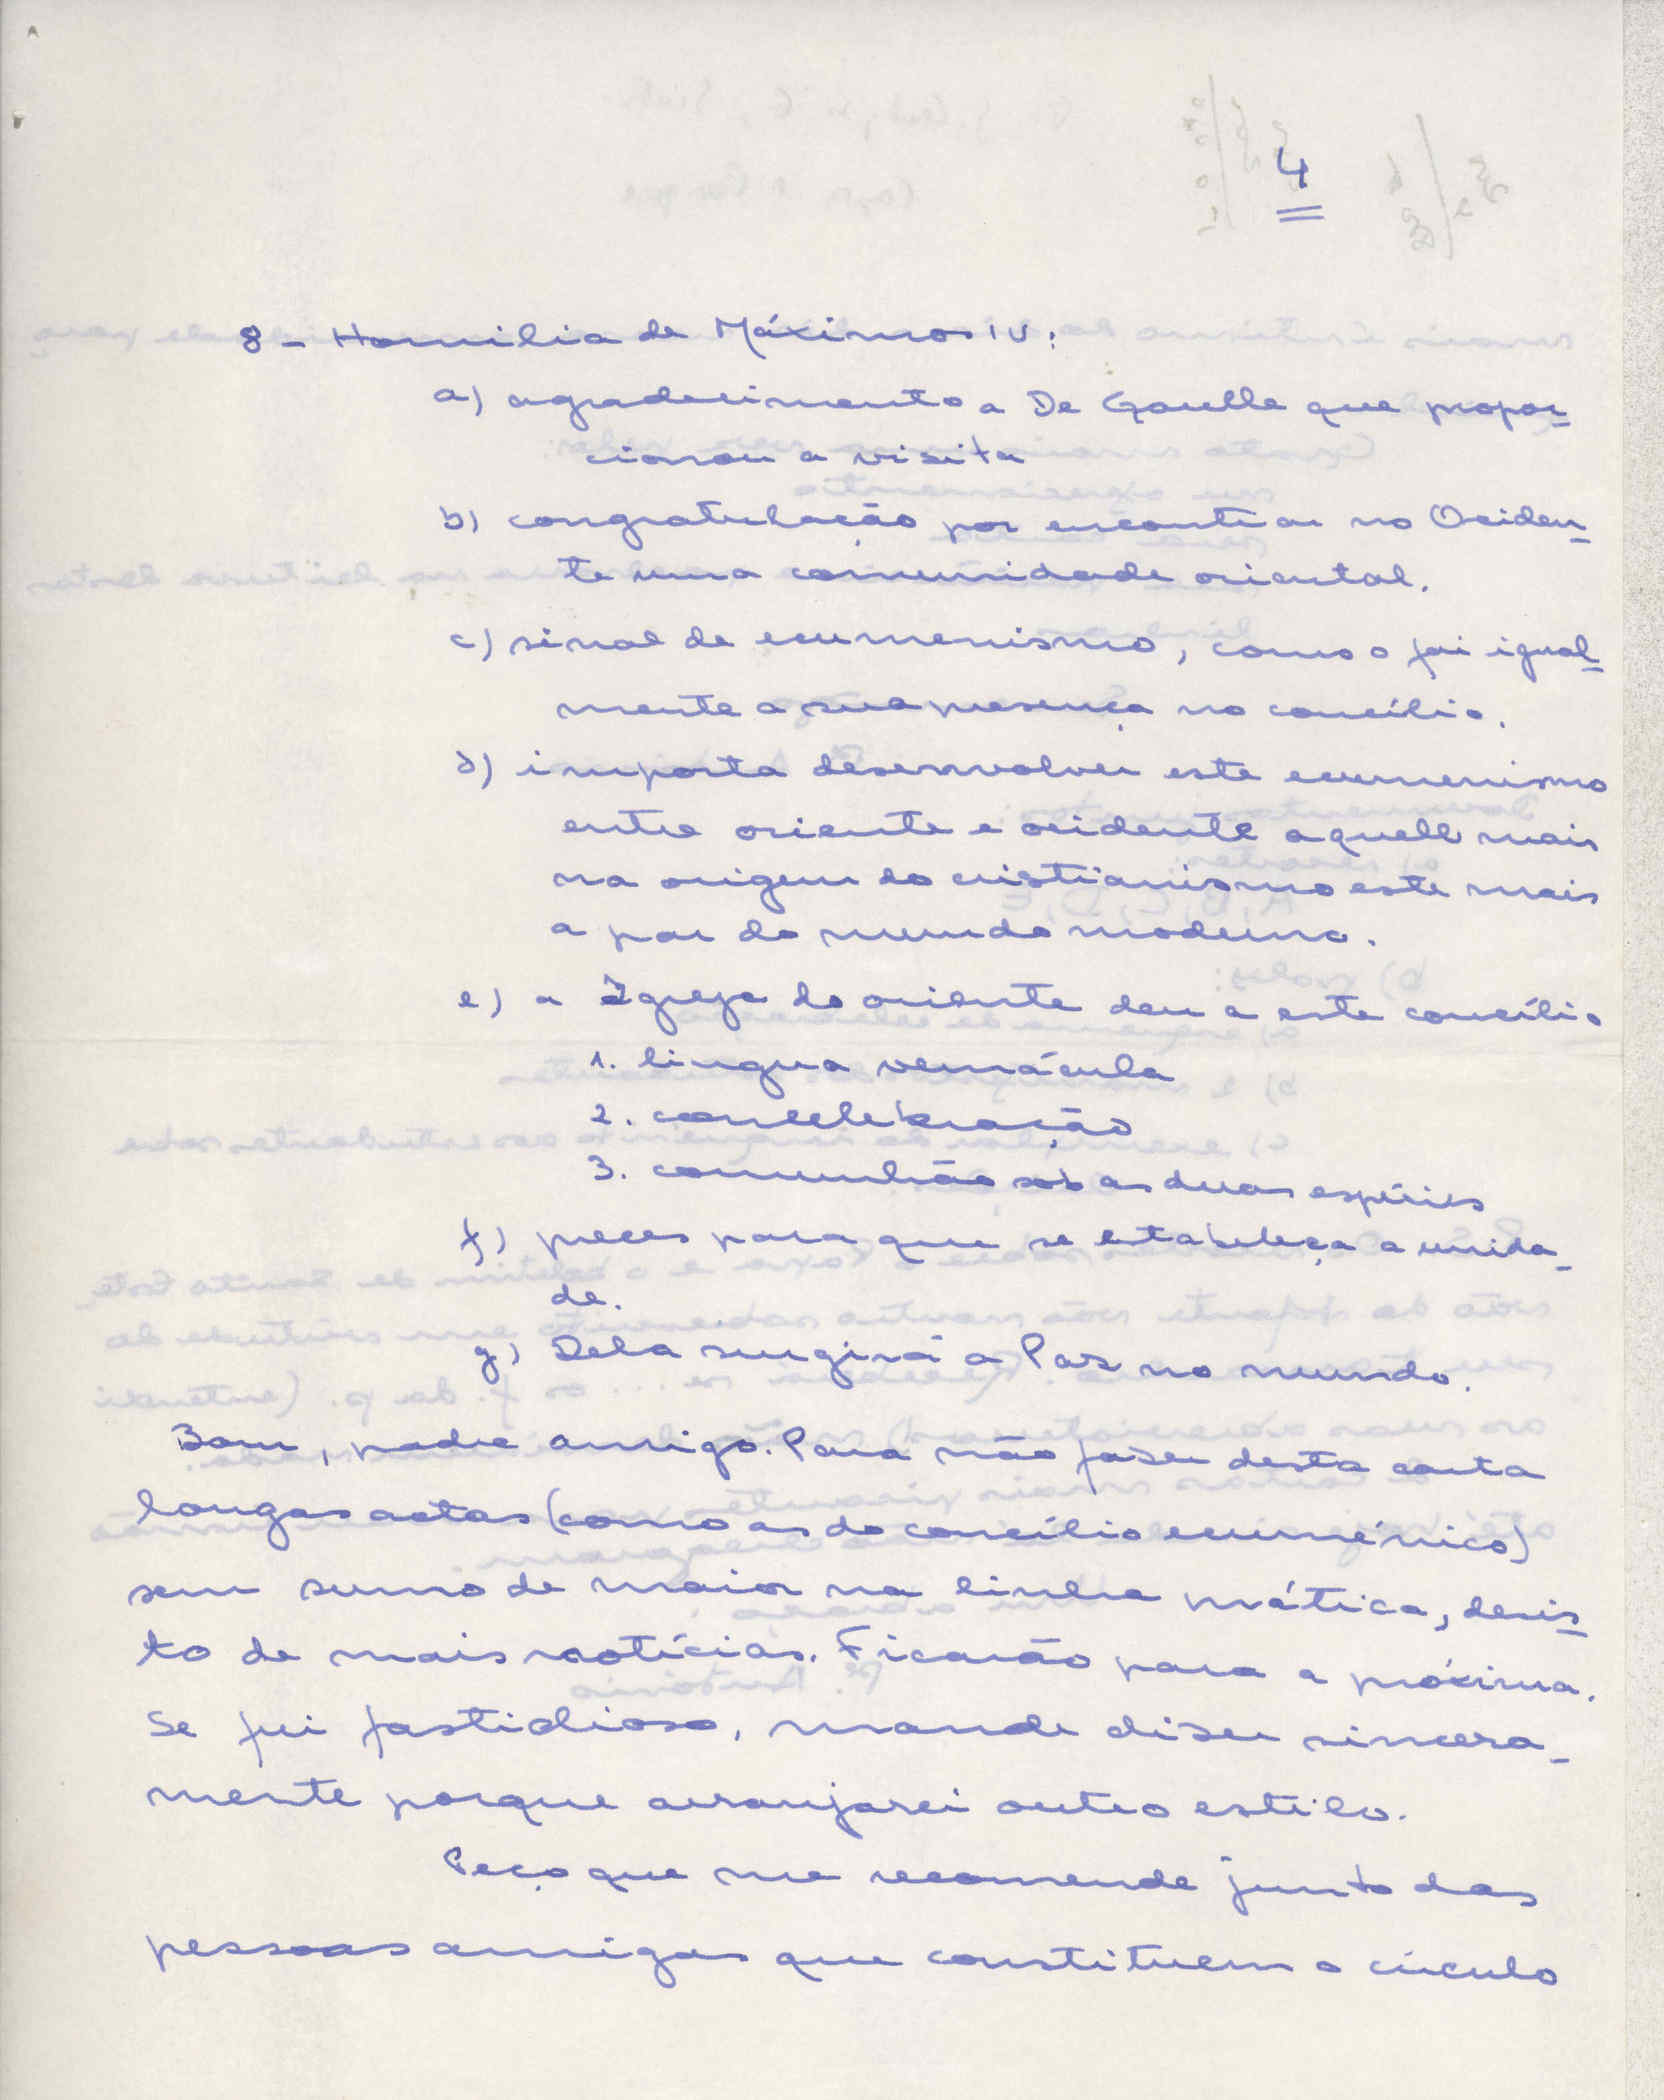 4
8 - Homilia de Máximos IV:
a) agradecimento a De Gaulle que propor-
cionou a visita
b) congratulação por encontrar no Ociden-
te uma comunidade oriental.
c) sinal de ecumenismo, como o foi igual-
mente a sua presença no concílio.
d) importa desenvolver este ecumenismo
entre oriente e ocidente aquele mais
na origem do cristianismo este mais
a par do mundo moderno.
e) a Igreja do oriente deu a este concílio
1. lingua vernácula
2. concelebração
3. comunhão sob as duas espécies
f) preces para que se estabeleça a unida-
de.
g) Dela surgirá a Paz no mundo.
Bom, padre amigo. Para não fazer desta carta
longas actas (como as do concílio ecuménico)
sem sumo de maior na linha prática, desis-
to de mais notícias. Ficarão para a próxima.
Se fui fastidioso, mande dizer sincera-
mente porque arranjarei outro estilo.
Peço que me recomende junto das
pessoas amigas que constituem o círculo